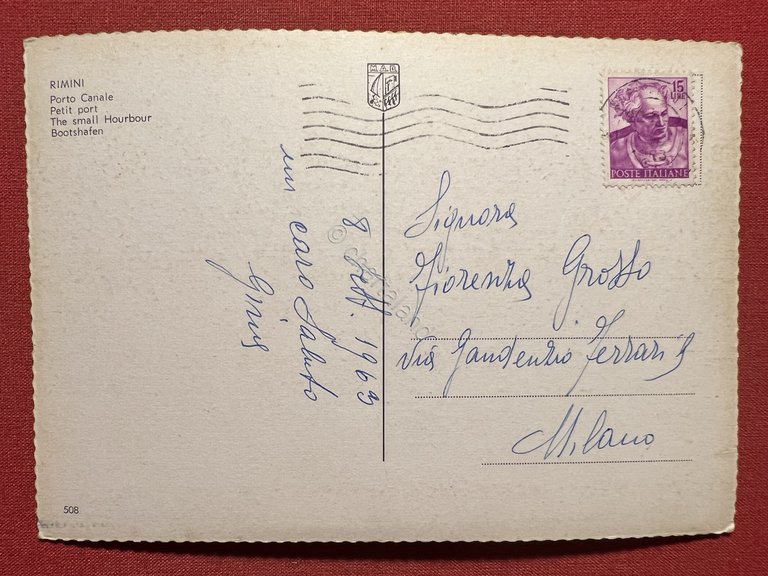 RIMINI
Porto Canale
Petit port
The small Hourbour
Bootshafen
MAR
15
LIRE
POSTE ITALIANE
8 Sett. 1963
un caro saluto
Signora
Fiorenza Grosso
Via Gaudenzio Ferrari 9
Milano
508